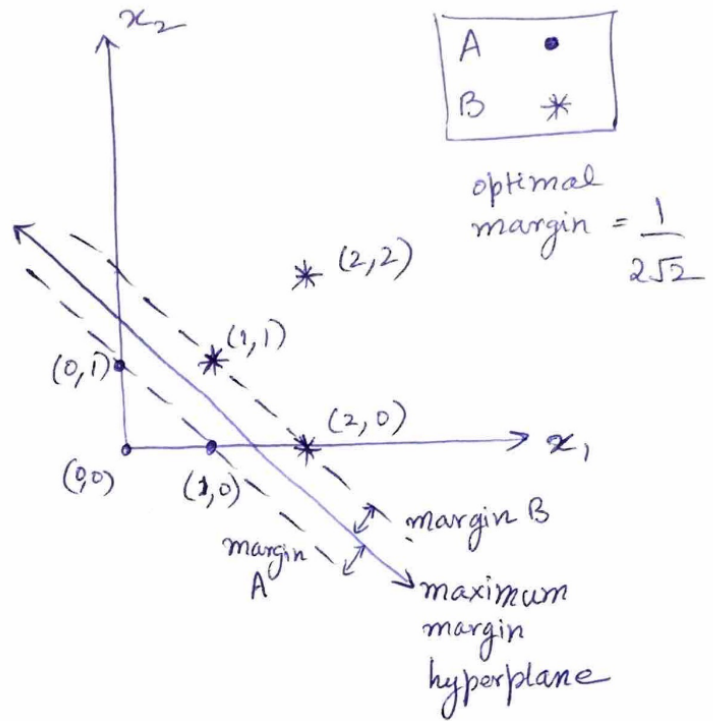 x₂
A
B
optimal
margin = 1
2√2
(2,2)
(1,1)
(0,1)
(2,0)
x₁
(0,0)
(1,0)
margin B
margin
A
maximum
margin
hyperplane